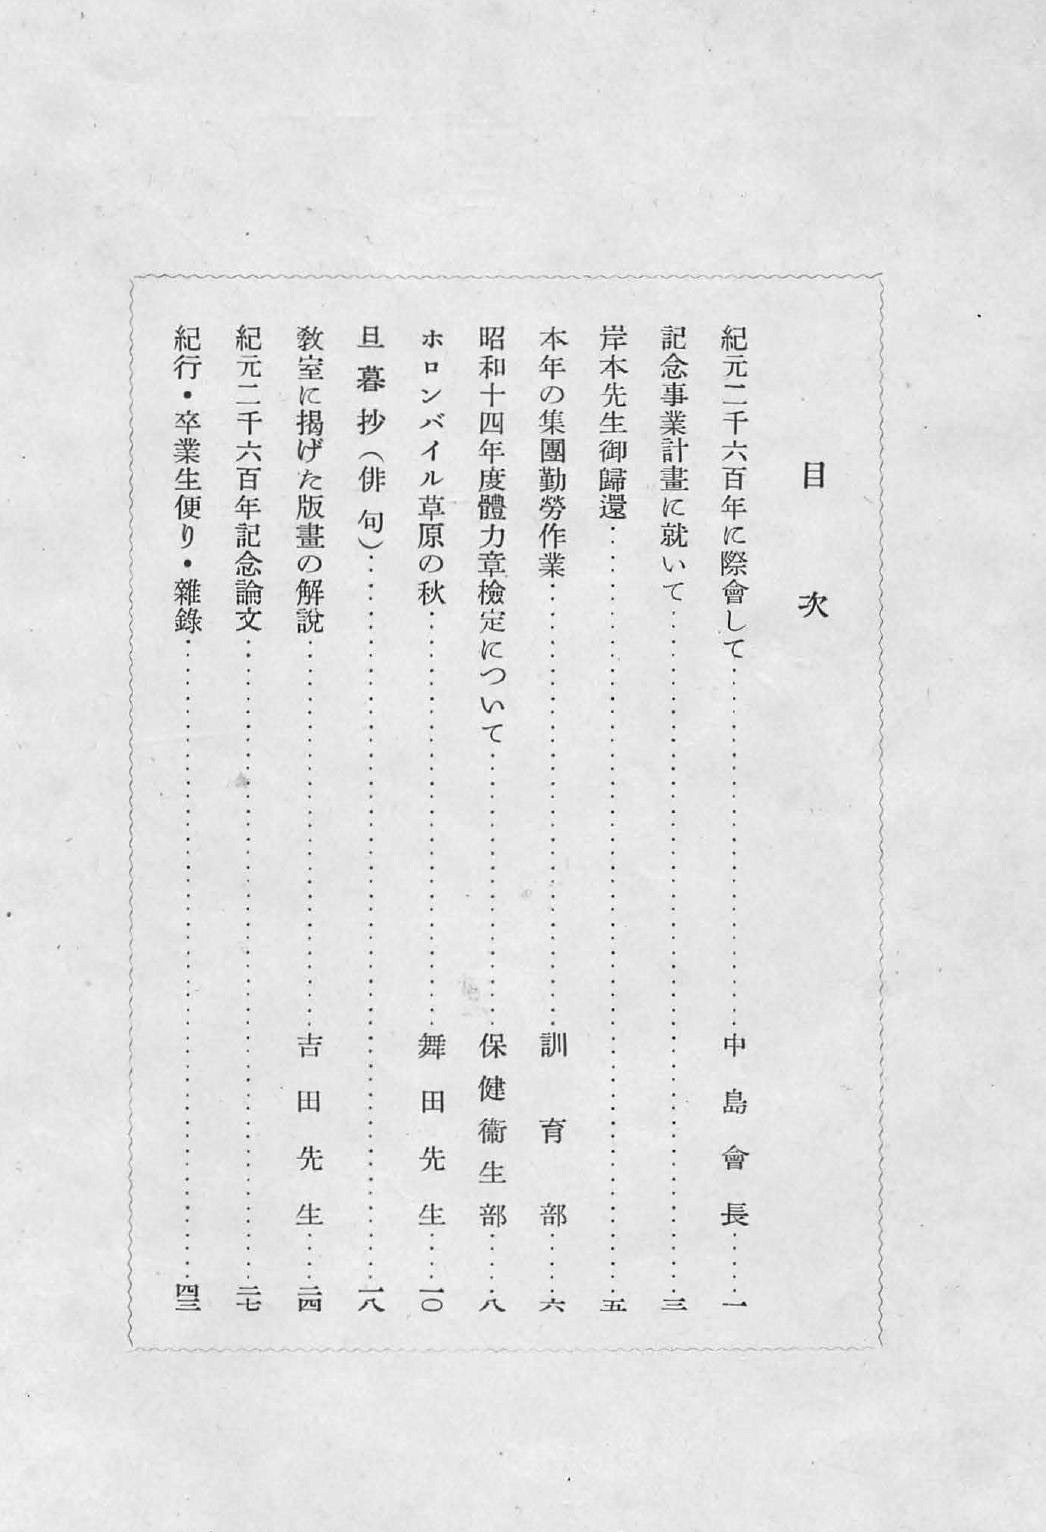 目次
紀元二千六百年に際會して……………中島會長……一
記念事業計畫に就いて……………三
岸本先生御歸還……………五
本年の集團勤勞作業……………訓育部……六
昭和十四年度體力章檢定について……………保健衞生部……八
ホロンバイル草原の秋……………舞田先生……一〇
旦暮抄(俳句)……………一八
敎室に揭げた版畫の解說……………吉田先生……二四
紀元二千六百年記念論文……………二七
紀行・卒業生便り・雜錄……………四三